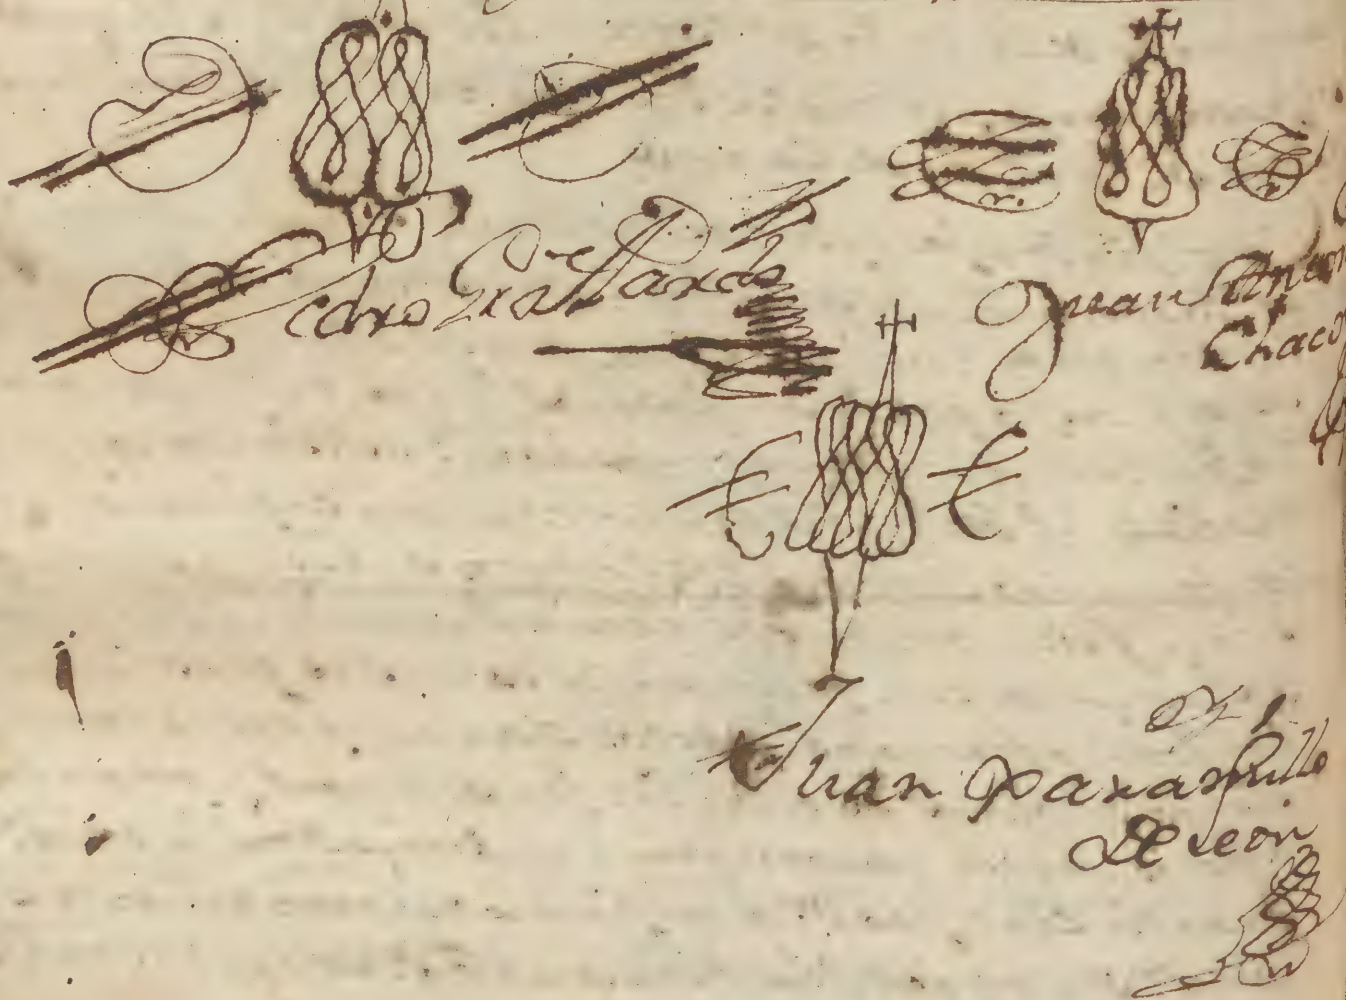 Pedro Gallardo
Juan Anton
Chaco
Juan Paxarillo
De leon